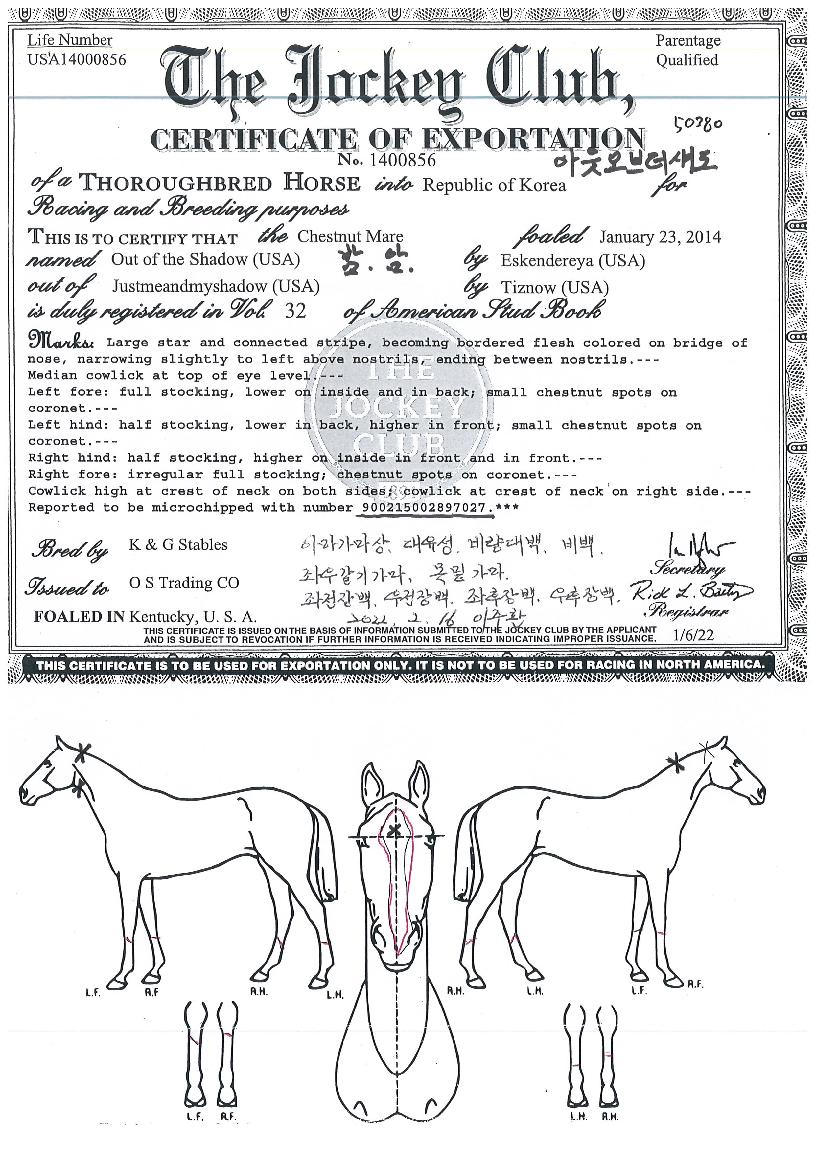 Life Number
USA14000856
Parentage
Qualified
The Jockey Club,
CERTIFICATE OF EXPORTATION
50780
No. 1400856
아웃오브더섀도
of a THOROUGHBRED HORSE into Republic of Korea for
Racing and Breeding purposes
THIS IS TO CERTIFY THAT the Chestnut Mare foaled January 23, 2014
named Out of the Shadow (USA) by Eskendereya (USA)
밤. 암.
out of Justmeandmyshadow (USA) by Tiznow (USA)
is duly registered in Vol. 32 of American Stud Book
Marks: Large star and connected stripe, becoming bordered flesh colored on bridge of
nose, narrowing slightly to left above nostrils, ending between nostrils.---
Median cowlick at top of eye level.---
Left fore: full stocking, lower on inside and in back; small chestnut spots on
coronet.---
Left hind: half stocking, lower in back, higher in front; small chestnut spots on
coronet.---
Right hind: half stocking, higher on inside in front and in front.---
Right fore: irregular full stocking; chestnut spots on coronet.---
Cowlick high at crest of neck on both sides; cowlick at crest of neck on right side.---
Reported to be microchipped with number 900215002897027.***
THE
JOCKEY
CLUB
Bred by K & G Stables
이마가마상, 대유성, 비량대백, 비백.
Secretary
Issued to O S Trading CO
좌우갈기가마, 목밑가마.
Rick L. Bailey
좌전장백, 우전장백, 좌후장백, 우후장백.
Registrar
FOALED IN Kentucky, U. S. A.
2022. 2. 16 이주환
THIS CERTIFICATE IS ISSUED ON THE BASIS OF INFORMATION SUBMITTED TO THE JOCKEY CLUB BY THE APPLICANT
AND IS SUBJECT TO REVOCATION IF FURTHER INFORMATION IS RECEIVED INDICATING IMPROPER ISSUANCE.
1/6/22
THIS CERTIFICATE IS TO BE USED FOR EXPORTATION ONLY. IT IS NOT TO BE USED FOR RACING IN NORTH AMERICA.
L.F. R.F R.H. L.H. R.H. L.H. L.F. R.F.
L.F. R.F. L.H. R.H.